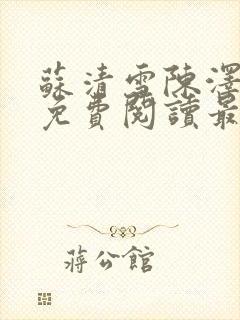 蘇清雪陳澤
免費閱讀最
蔣公館